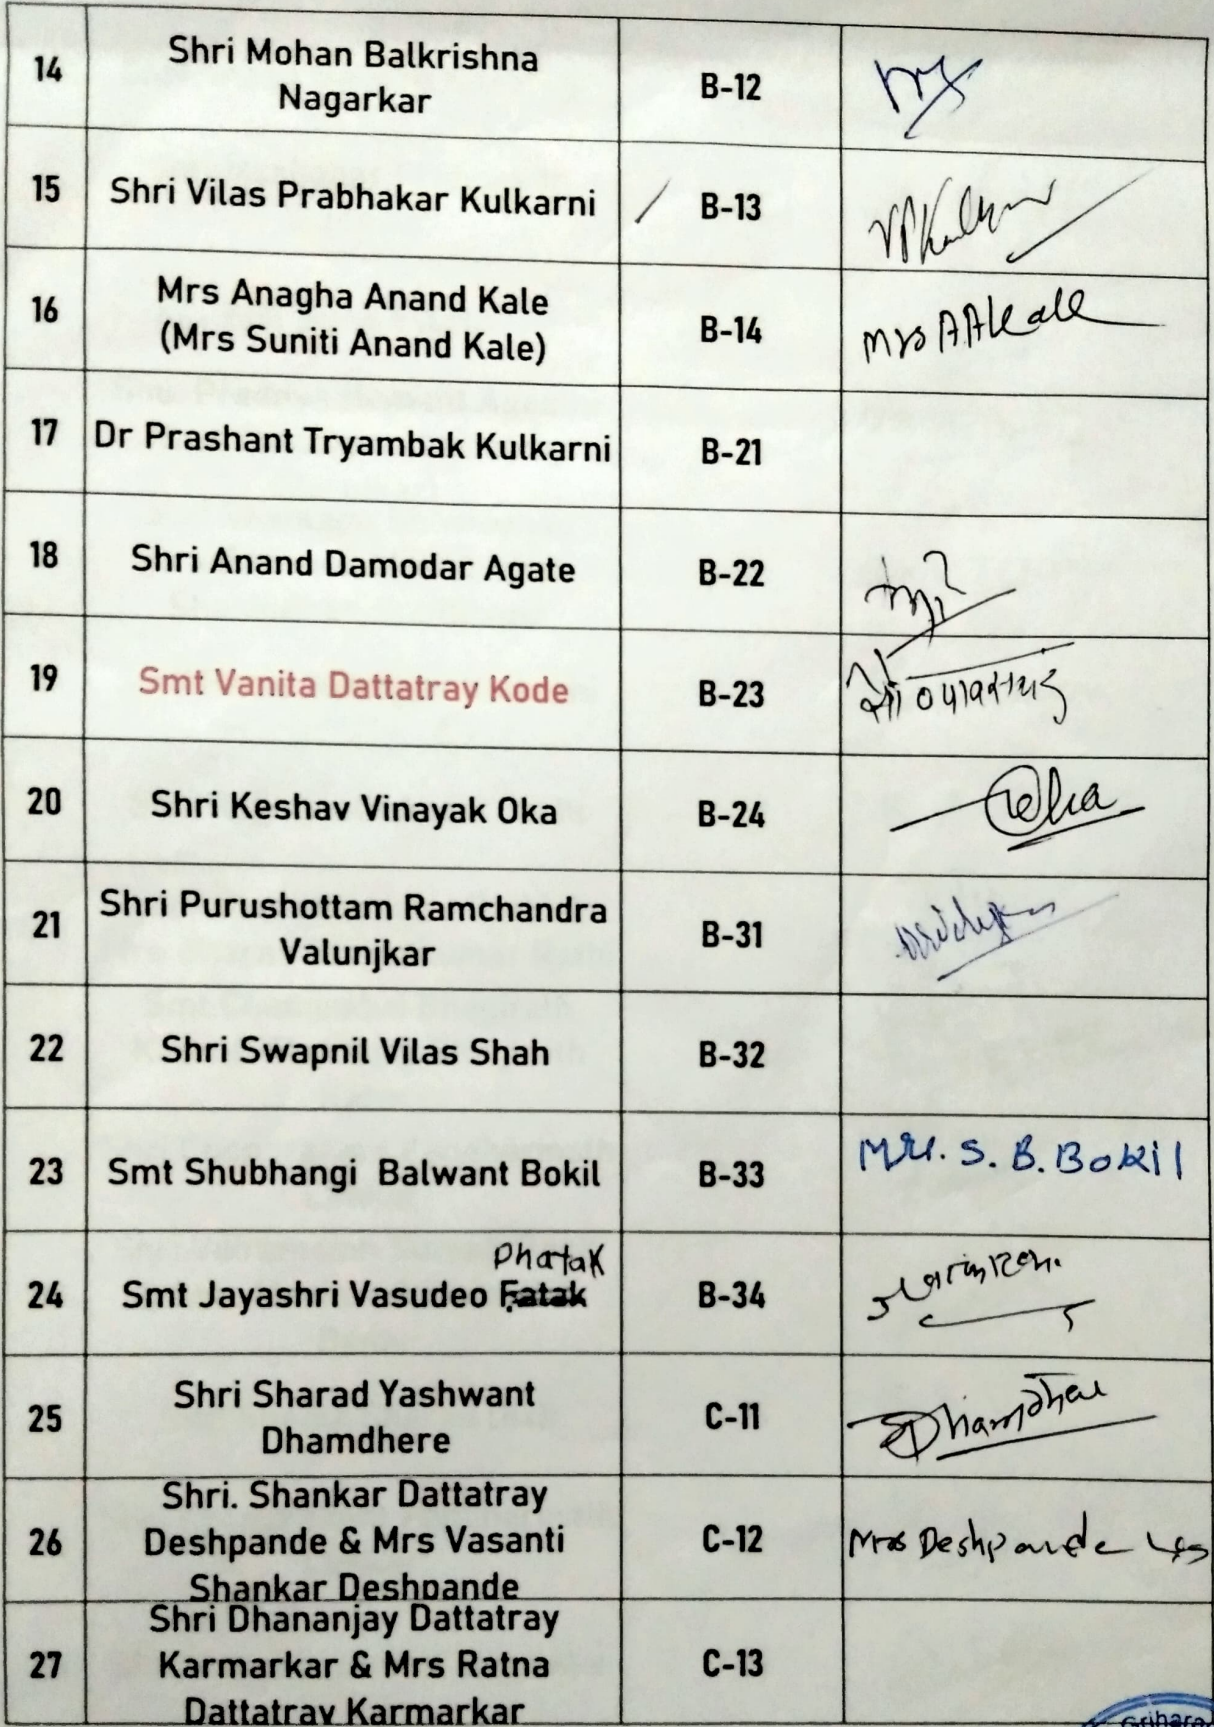 14 Shri Mohan Balkrishna B-12
Nagarkar
15 Shri Vilas Prabhakar Kulkarni B-13 VPKulkarni
16 Mrs Anagha Anand Kale B-14 Mrs A.A.Kale
(Mrs Suniti Anand Kale)
17 Dr Prashant Tryambak Kulkarni B-21
18 Shri Anand Damodar Agate B-22
19 Smt Vanita Dattatray Kode B-23
20 Shri Keshav Vinayak Oka B-24 Oka
21 Shri Purushottam Ramchandra B-31
Valunjkar
22 Shri Swapnil Vilas Shah B-32
23 Smt Shubhangi Balwant Bokil B-33 Mrs. S. B. Bokil
Phatak
24 Smt Jayashri Vasudeo Fatak B-34
25 Shri Sharad Yashwant C-11
Dhamdhere
Shri. Shankar Dattatray
26 Deshpande & Mrs Vasanti C-12 Mrs Deshpande
Shankar Deshpande
Shri Dhananjay Dattatray
27 Karmarkar & Mrs Ratna C-13
Dattatray Karmarkar